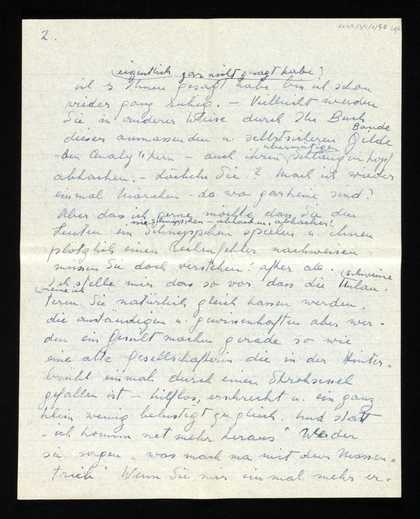 2.
(eigentlich gar nicht gesagt habe!)
ich's Ihnen gesagt habe bin ich schon
wieder ganz ruhig. — Vielleicht werden
Sie in anderer Weise durch Ihr Buch
dieser anmassenden u. selbstsicheren
Bande
Gilde
den Analytikern — auch ihren
übermütigen
abhacken. — Lächeln Sie? Mach ich wieder
einmal Märchen — da wo gar keine sind?
Aber dass ich gerne möchte dass Sie den
Leuten ein Schnippchen spielen u. ihnen
plötzlich einen Rechenfehler nachweisen
müssen Sie doch verstehen! after all.
Ich stelle mir das so vor dass die
(Schweine
Sie natürlich gleich hassen werden.
die anständigen u. gewissenhaften aber wer-
den ein Gesicht machen gerade so wie
eine alte Gesellschafterin die in der Hinter-
einmal durch einen Strohsessel
gefallen ist — hilflos, erschreckt u. ein ganz
klein wenig belustigt zugleich. Und statt
"ich komm net mehr heraus" werden
sie sagen "was mach ma mit dem
Wenn Sie mir einmal mehr er-